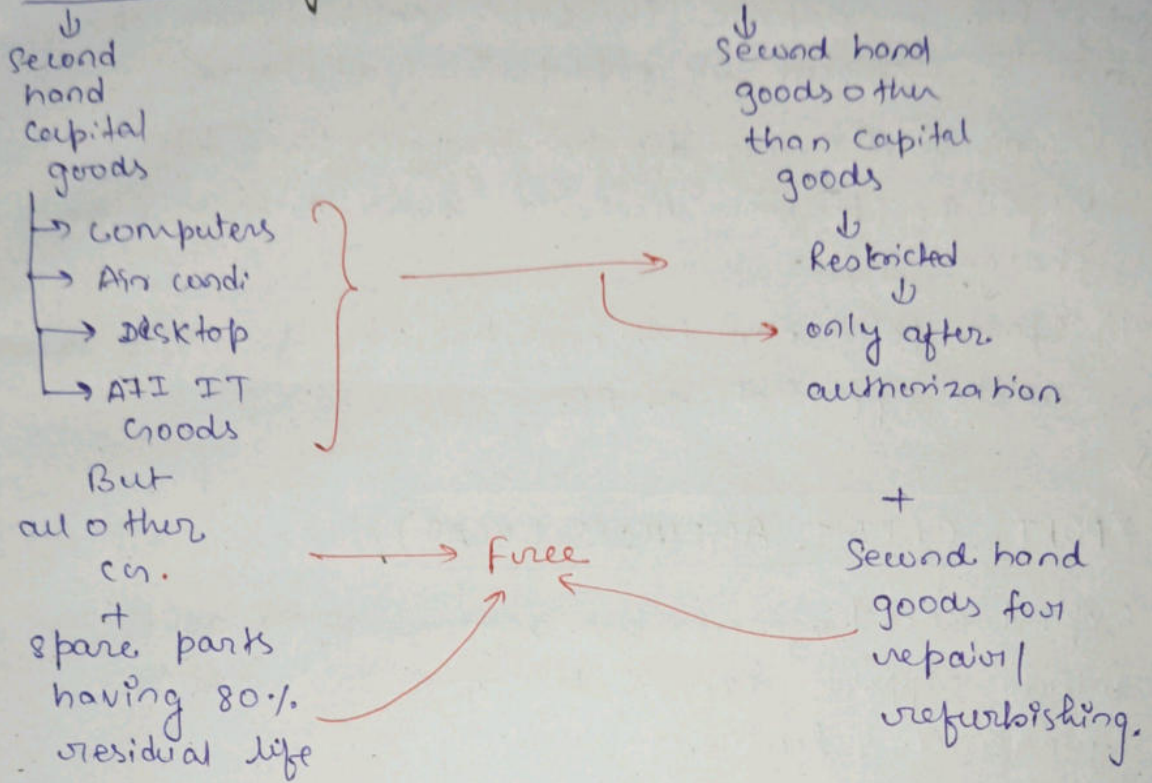 Second
hand
Capital
goods
Computers
Air condi
Desktop
All IT
Goods
But
all other
CG.
+
spare parts
having 80%
residual life
Free
Second hand
goods other
than Capital
goods
Restricted
only after
authorization
+
Second hand
goods for
repair/
refurbishing.